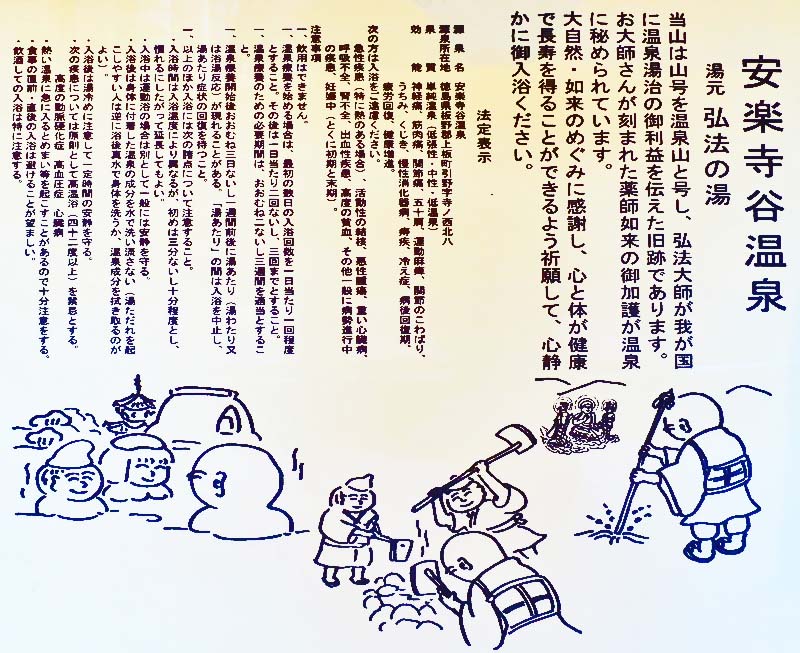 安楽寺谷温泉
湯元 弘法の湯
当山は山号を温泉山と号し、弘法大師が我が国
に温泉湯治の御利益を伝えた旧跡であります。
お大師さんが刻まれた薬師如来の御加護が温泉
に秘められています。
大自然・如来のめぐみに感謝し、心と体が健康
で長寿を得ることができるよう祈願して、心静
かに御入浴ください。
法定表示
源泉名 安楽寺谷温泉
源泉所在地 徳島県板野郡上板町引野字寺ノ西北八
泉質 単純温泉（低張性・中性、低温泉）
効能 神経痛、筋肉痛、関節痛、五十肩、運動麻痺、関節のこわばり、
うちみ、くじき、慢性消化器病、痔疾、冷え症、病後回復期、
疲労回復、健康増進。
次の方は入浴をご遠慮ください。
急性疾患（特に熱のある場合）、活動性の結核、悪性腫瘍、重い心臓病、
呼吸不全、腎不全、出血性疾患、高度の貧血、その他一般に病勢進行中
の疾患、妊娠中（とくに初期と末期）。
注意事項
一、飲用はできません。
一、温泉療養を始める場合は、最初の数日の入浴回数を一日当たり一回程度
とすること。その後は一日当たり二回ないし、三回までとすること。
一、温泉療養のための必要期間は、おおむね二ないし三週間を適当とするこ
と。
一、温泉療養開始後おおむね三日ないし一週間前後に湯あたり（湯わたり又
は浴湯反応）が現れることがある。「湯あたり」の間は入浴を中止し、
湯あたり症状の回復を待つこと。
一、以上のほか入浴には次の諸点について注意すること。
・入浴時間は入浴温度により異なるが、初めは三分ないし十分程度とし、
慣れるにしたがって延長してもよい。
・入浴中は運動浴の場合は別として一般には安静を守る。
・入浴後は身体に付着した温泉の成分を水で洗い流さない（湯ただれを起
こしやすい人は逆に浴後真水で身体を洗うか、温泉成分を拭き取るのが
よい）。
・入浴後は湯冷めに注意して一定時間の安静を守る。
・次の疾患については原則として高温浴（四十二度以上）を禁忌とする。
高度の動脈硬化症 高血圧症 心臓病
・熱い温泉に急に入るとめまい等を起こすことがあるので十分注意をする。
・食事の直前・直後の入浴は避けることが望ましい。
・飲酒しての入浴は特に注意する。